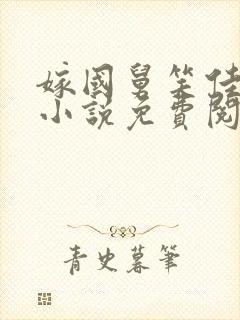 嫁國舅笑佳
小說免費閱
青史暮筆